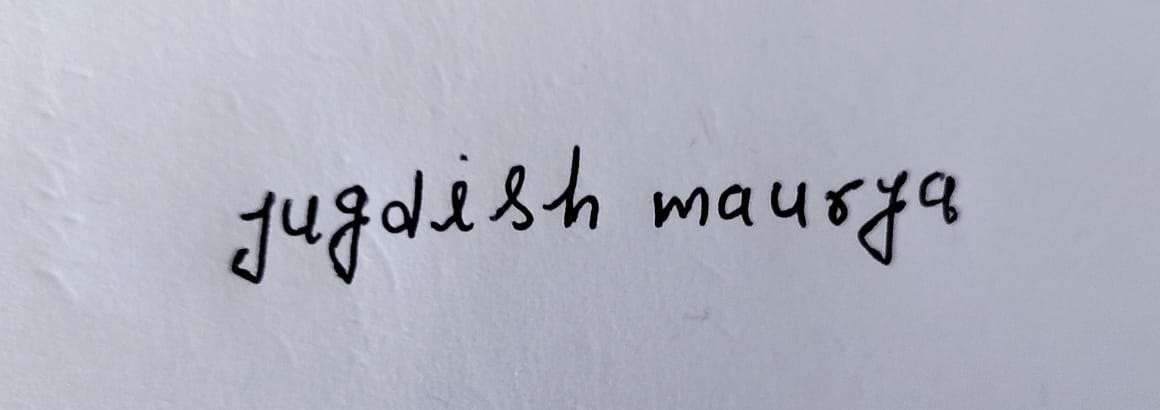 jugdish maurya